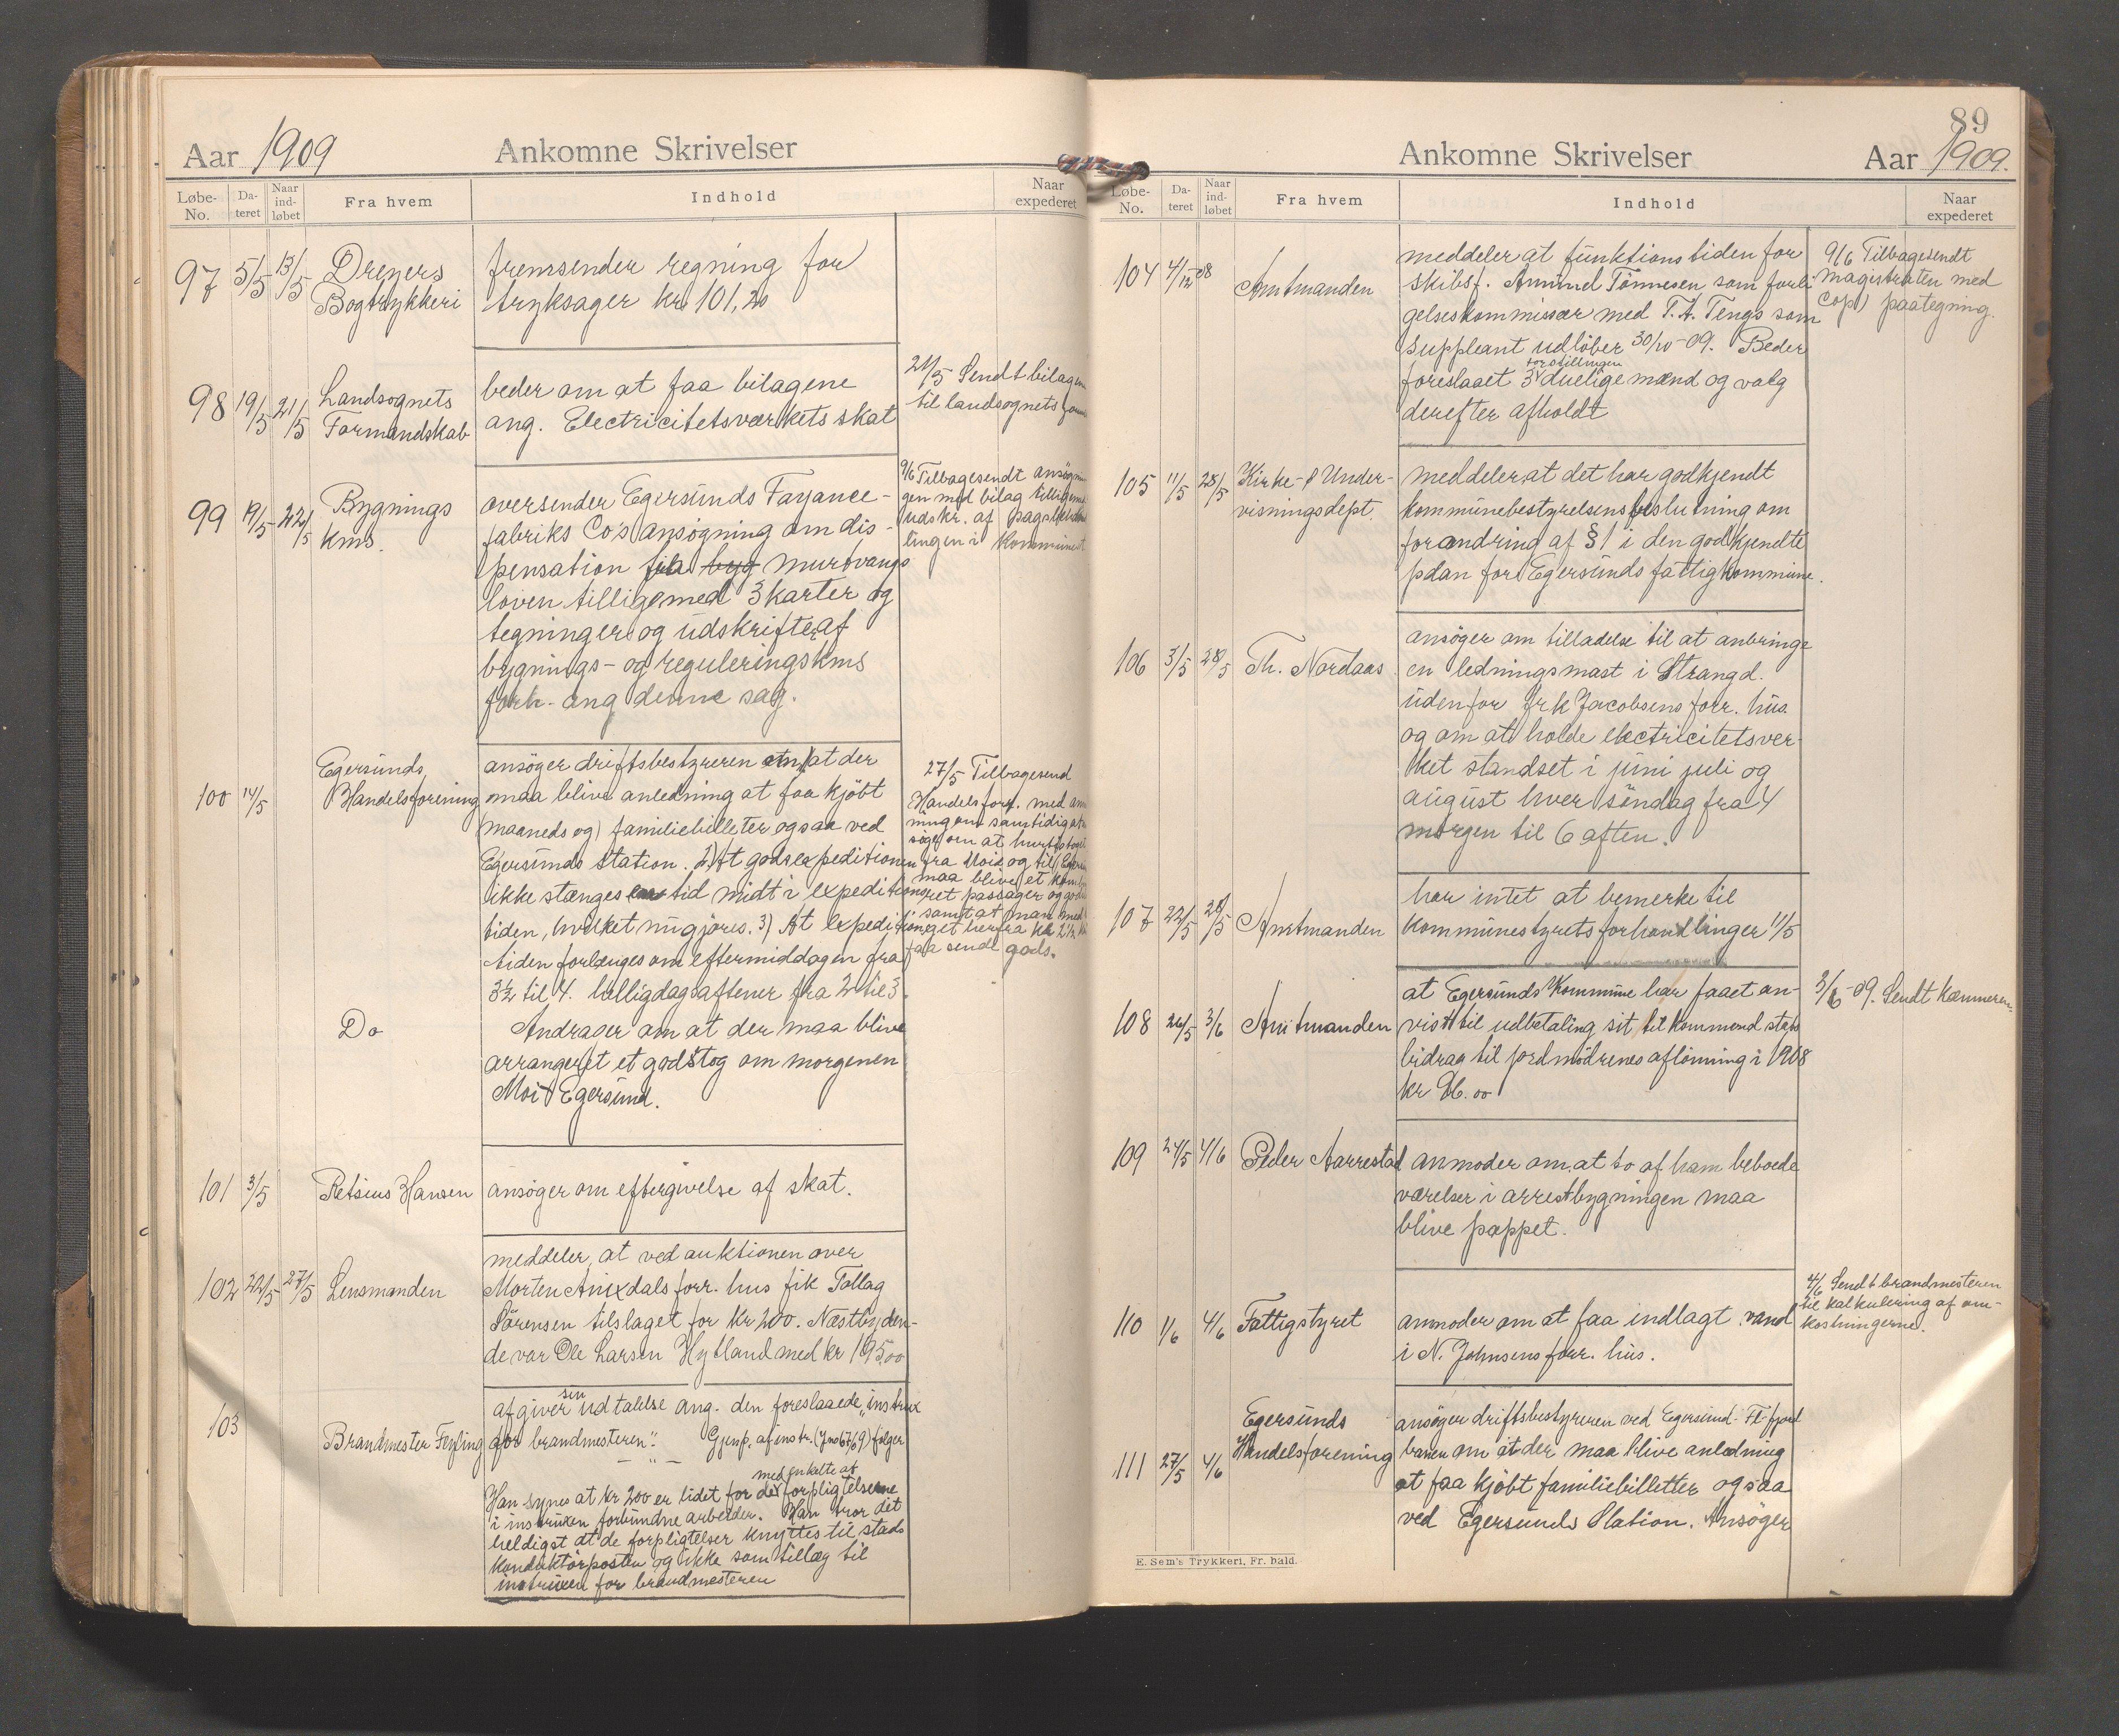 Aar 1909 Ankomne Skrivelser
Løbe-No. Da-teret Naar ind-løbet Fra hvem Indhold Naar expederet
97 5/5 13/5 Dreyers Bogtrykkeri
fremsender regning for
tryksager kr. 101,20
98 19/5 21/5 Landsognets Formandskab
beder om at faa bilagene
ang. Electricitetsværkets skat
21/5 Sendt bilagene
til landsognets
99 19/5 22/5 Bygnings kms.
oversender Egersunds Fayance-
fabriks Co's ansøgning om dis-
pensation fra byg murtvangs
loven tilligemed 3 karter og
tegninger og udskrifter af
bygnings- og reguleringskms
forh. ang denne sag.
9/6 Tilbagesendt
gen med bilag
udskr. af
lingen i
100 14/5 Egersunds Handelsforening
ansøger driftsbestyreren om at der
maa blive anledning at faa kjøbt
maaneds og) familiebilleter ogsaa ved
Egersunds Station. 2) At godsexpeditionen
ikke stænges en tid midt i expeditions
tiden, hvilket nu gjøres. 3) At expeditions
tiden forlænges om eftermiddagen fra
3½ til 4. helligdagsaftener fra 2 til 3.
27/5 Tilbagesend
Handelsfor. med
ning om samtidig at
søge om at
fra Moi og til
maa blive et
ret passager og
samt at man med
toget herfra kl 2½
faa sende gods.
Do
Andrager om at der maa blive
arrangeret et godstog om morgenen
Moi-Egersund.
101 3/5 Retsius Hansen
ansøger om eftergivelse af skat.
102 22/5 27/5 Lensmanden
meddeler, at ved auktionen over
Morten forr. hus fik Tollag
Sørensen tilslaget for kr 200. Næstbyden-
de var Ole Larsen Hytland med kr 195,00
103 Brandmester Feyling
afgiver sin udtalelse ang. den foreslaaede „instrux
for brandmesteren". Gjenp. af instr. følger
Han synes at kr 200 er lidet for de med enkelte af forpligtelserne
i instruxen forbundne arbeider. Han tror det
heldigst at de forpligtelser knyttes til stads
konduktørposten og ikke som tillæg til
instruxen for brandmesteren
89
Ankomne Skrivelser Aar 1909.
Løbe-No. Da-teret Naar ind-løbet Fra hvem Indhold Naar expederet
104 4/12 08 Amtmanden
meddeler at funktionstiden for
skibsf. Ammund Tønnesen som forli-
gelseskommissær med T. A. Tengs som
suppleant udløber 30/10-09. Beder
foreslaaet 3 for stillingen duelige mænd og valg
derefter afholdt
9/6 Tilbagesendt
magistraten med
cop) paategning.
105 11/5 28/5 Kirke- & Under-
visningsdept.
meddeler at det har godkjendt
kommunebestyrelsens beslutning om
forandring af §1 i den godkjendte
plan for Egersunds fattigkommune.
106 3/5 28/5 Th. Nordaas
ansøger om tilladelse til at anbringe
en ledningsmast i Strangd.
udenfor frk Jacobsens forr. hus
og om at holde electricitetsver-
ket standset i juni juli og
august hver søndag fra 4
morgen til 6 aften.
107 22/5 28/5 Amtmanden
har intet at bemerke til
kommunestyrets forhandlinger 11/5
108 26/5 3/6 Amtmanden
at Egersunds Kommune har faaet an-
vist til udbetaling sit tilkommend stats
bidrag til jordmødrenes aflønning i 1908
3/6-09. Sendt kæmneren.
109 24/5 4/6 Peder Aarrestad
anmoder om at to af ham beboede
værelser i arrestbygningen maa
blive pappet.
110 1/6 4/6 Fattigstyret
anmoder om at faa indlagt vand
i N. Johnsens forr. hus.
4/6 Sendt brandmesteren
til kalkulering af om-
kostningerne.
111 27/5 4/6 Egersunds Handelsforening
ansøger driftsbestyreren ved Egersund-Fl-fjord
banen om at der maa blive anledning
at faa kjøbt familiebilletter ogsaa
ved Egersunds Station. Ansøger
E. Sem's Trykkeri, Fr. hald.